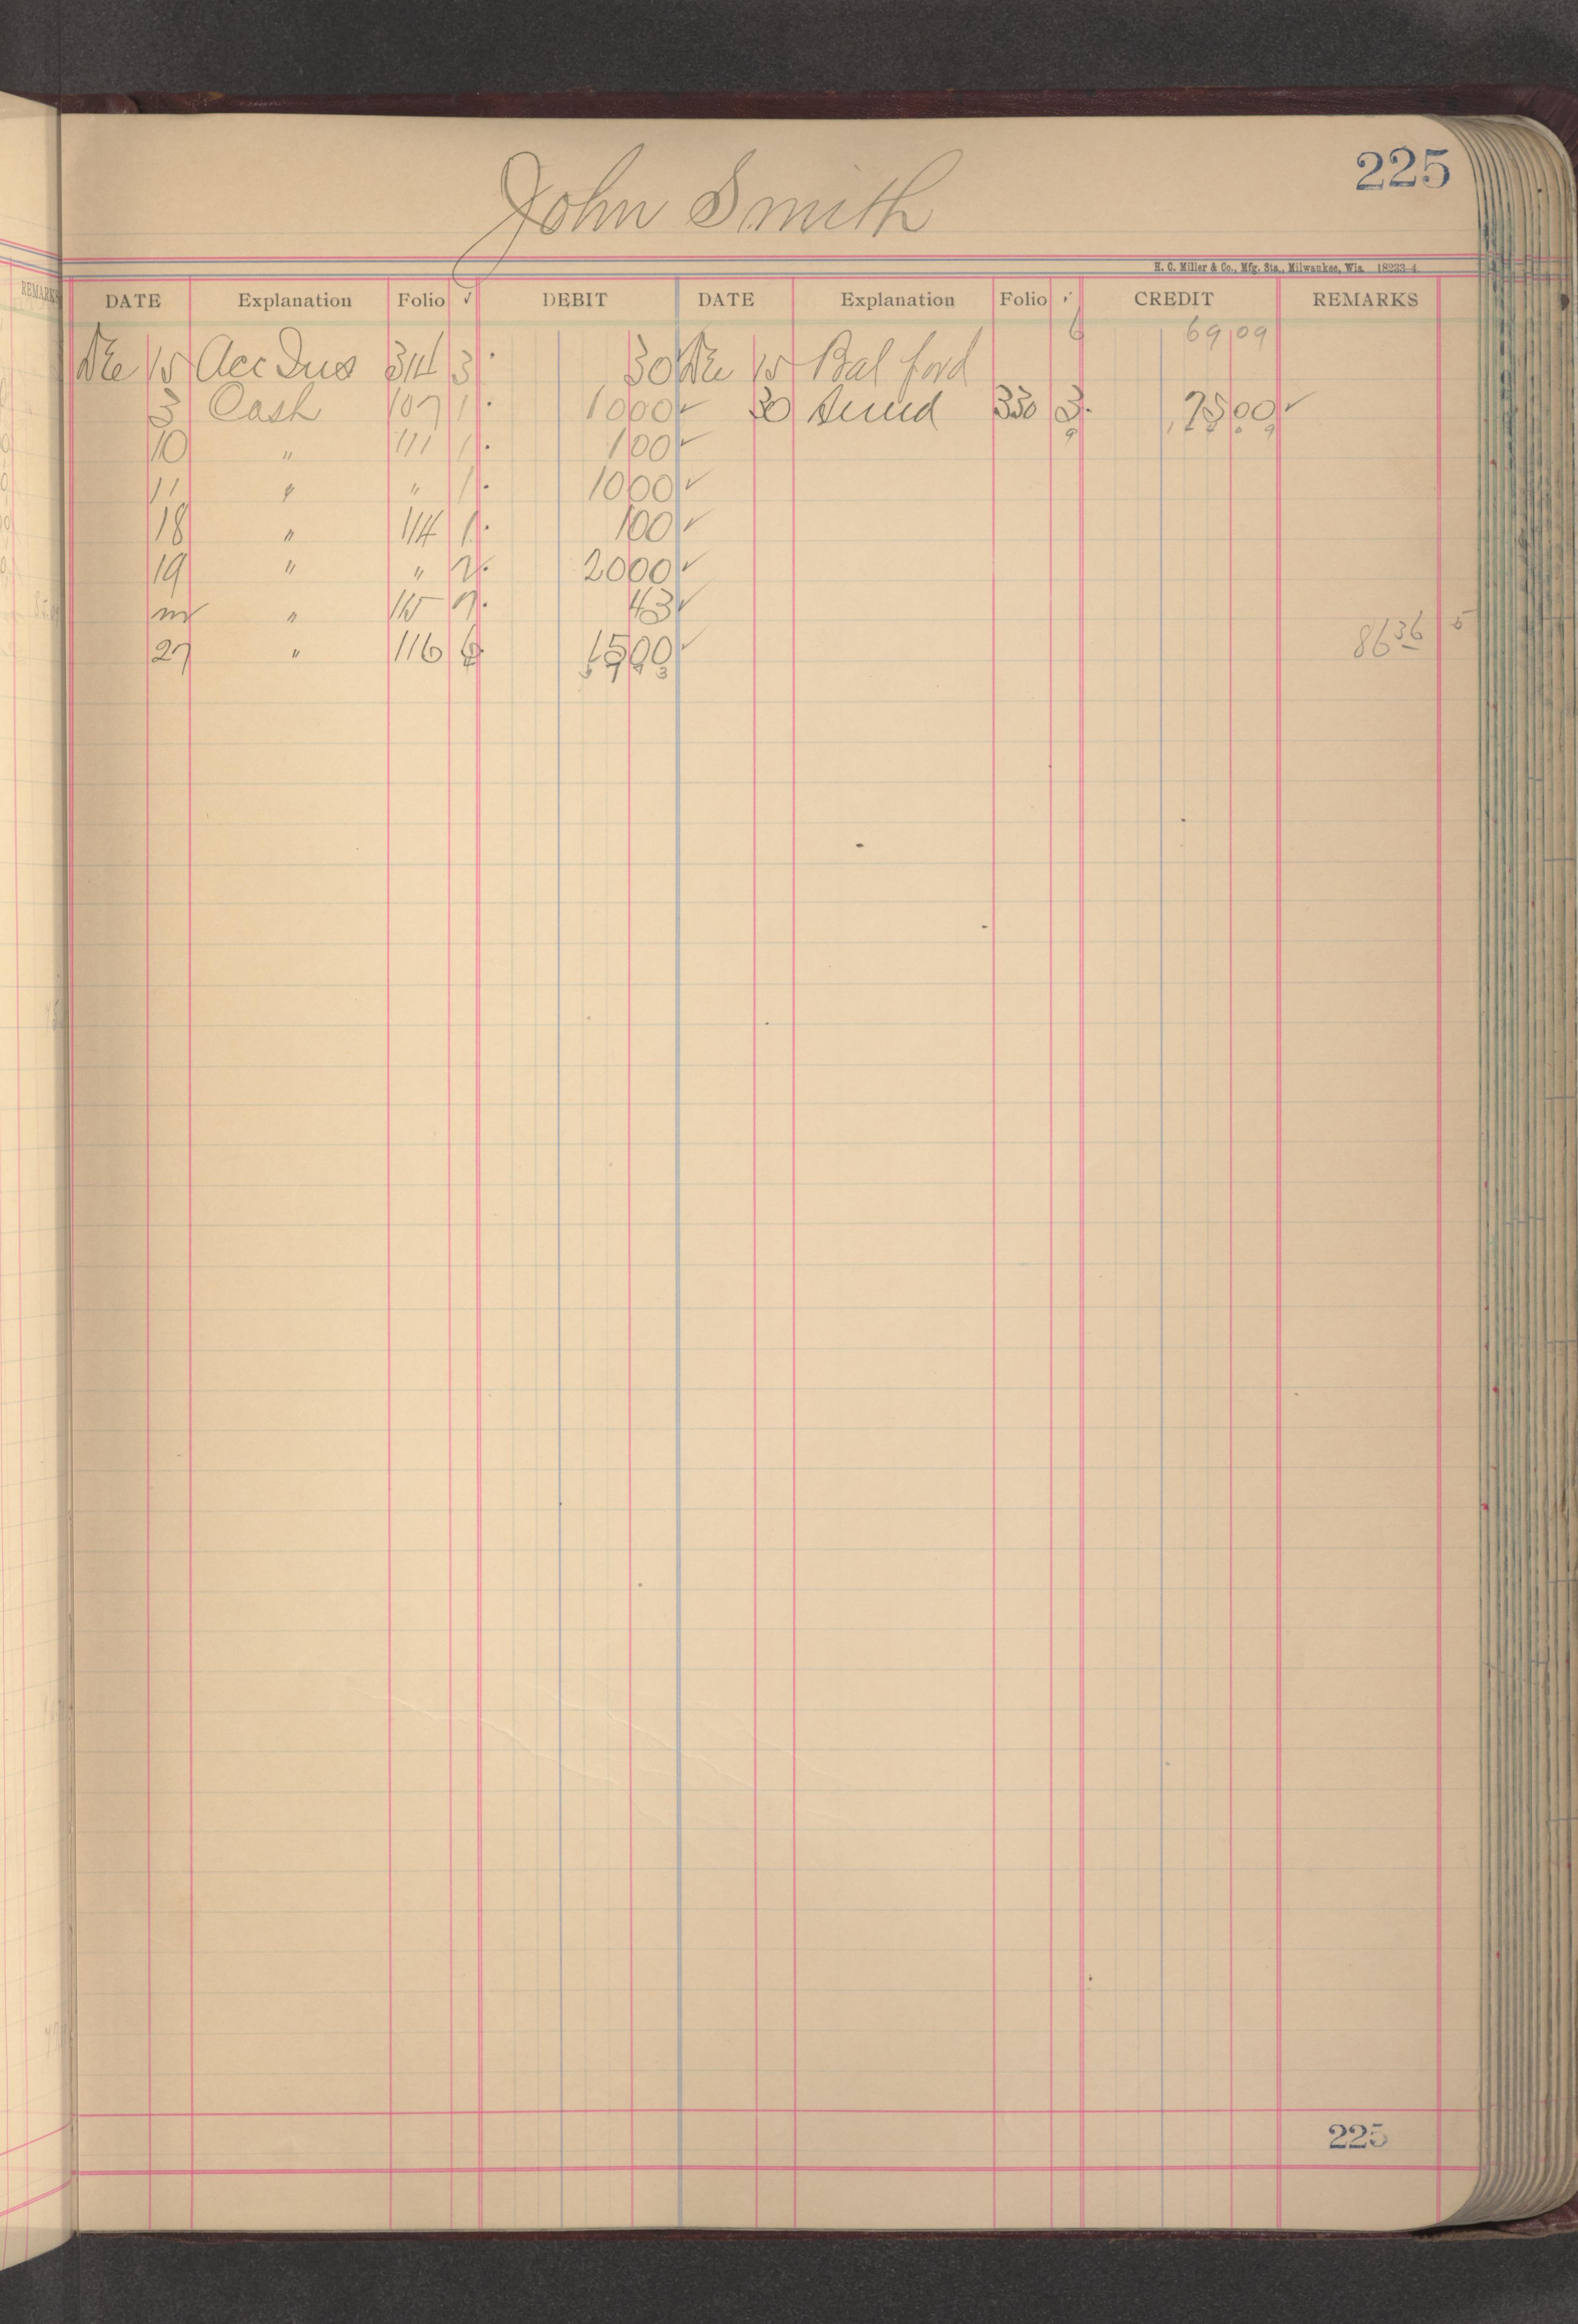 225
John Smith
H. C. Miller & Co., Mfg. Sta., Milwaukee, Wis. 18233-4
REMARKS
DATE Explanation Folio ✓ DEBIT DATE Explanation Folio ✓ CREDIT REMARKS
6 69 09
15 Acc 314 3 30 15 Bal ford
3 Cash 107 1 1000 ✓ 30 330 3 7500 ✓
10 " 111 1 100 ✓
11 " " 1 1000 ✓
18 " 114 1 100 ✓
19 " " 2 2000 ✓
" 115 7 43 ✓
27 " 116 6 1500 ✓
86 36 5
225